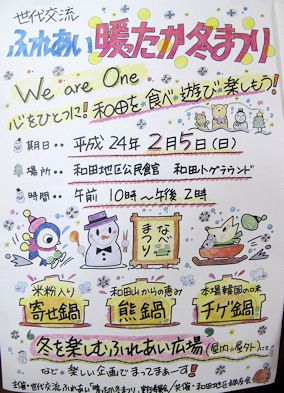 世代交流
ふれあい暖ったか冬まつり
We are One
心をひとつに!和田を食べ・遊び・楽しもう!
期日・・平成24年2月5日(日)
場所・・和田地区公民館 和田トグラウンド
時間・・午前10時~午後2時
なべまつり
米粉入り
寄せ鍋
和田山からの恵み
熊鍋
本場韓国の味
チゲ鍋
冬を楽しむふれあい広場(屋内・屋外)にて
など楽しい企画でまってまぁーす!
主催・世代交流ふれあい暖ったか冬まつり
共催・和田地区